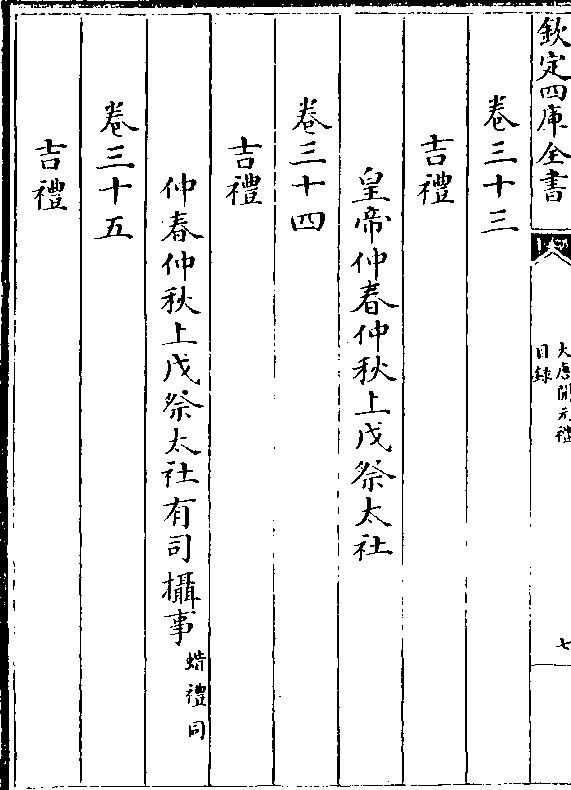 欽定四庫全書
大唐開元禮
目錄
七
卷三十三
吉禮
皇帝仲春仲秋上戊祭太社
卷三十四
吉禮
仲春仲秋上戊祭太社有司攝事
蜡禮同
卷三十五
吉禮